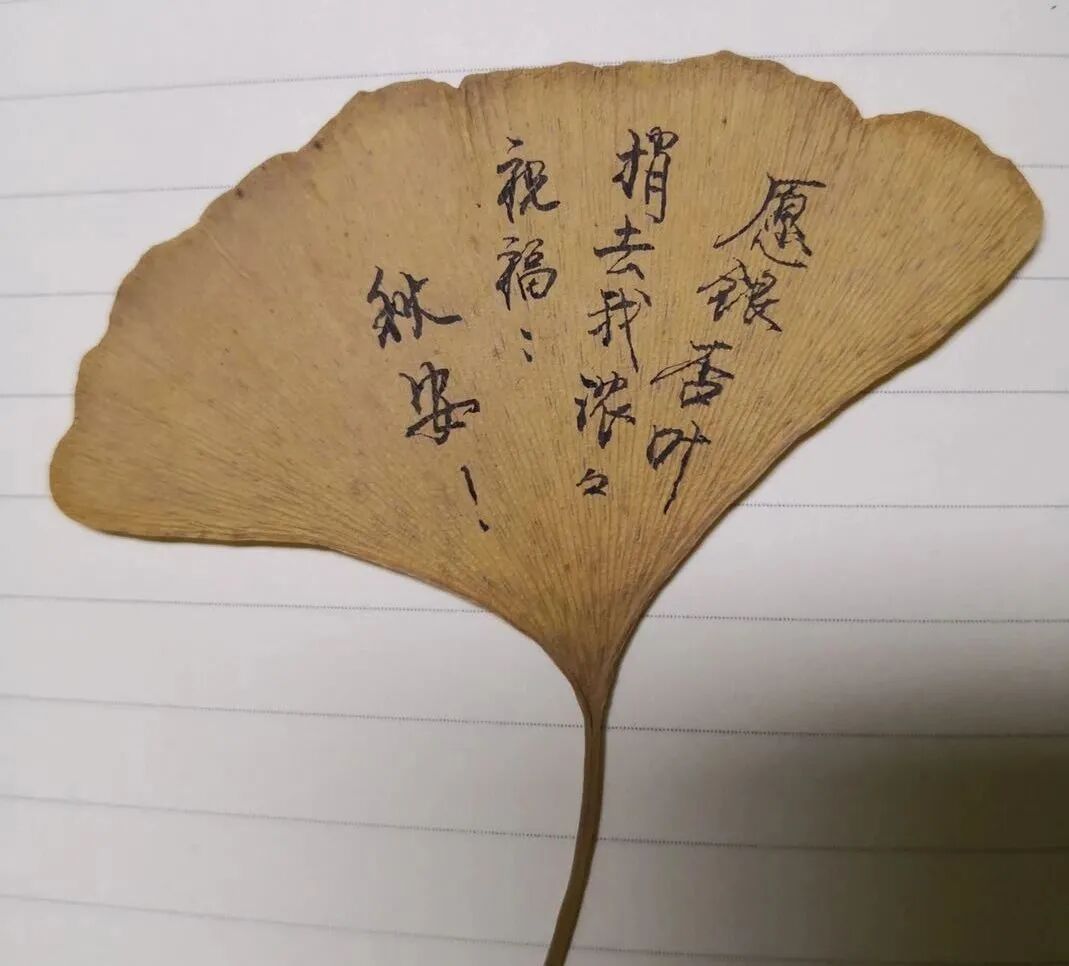 愿银杏叶
捎去我浓々
祝福：
秋安！